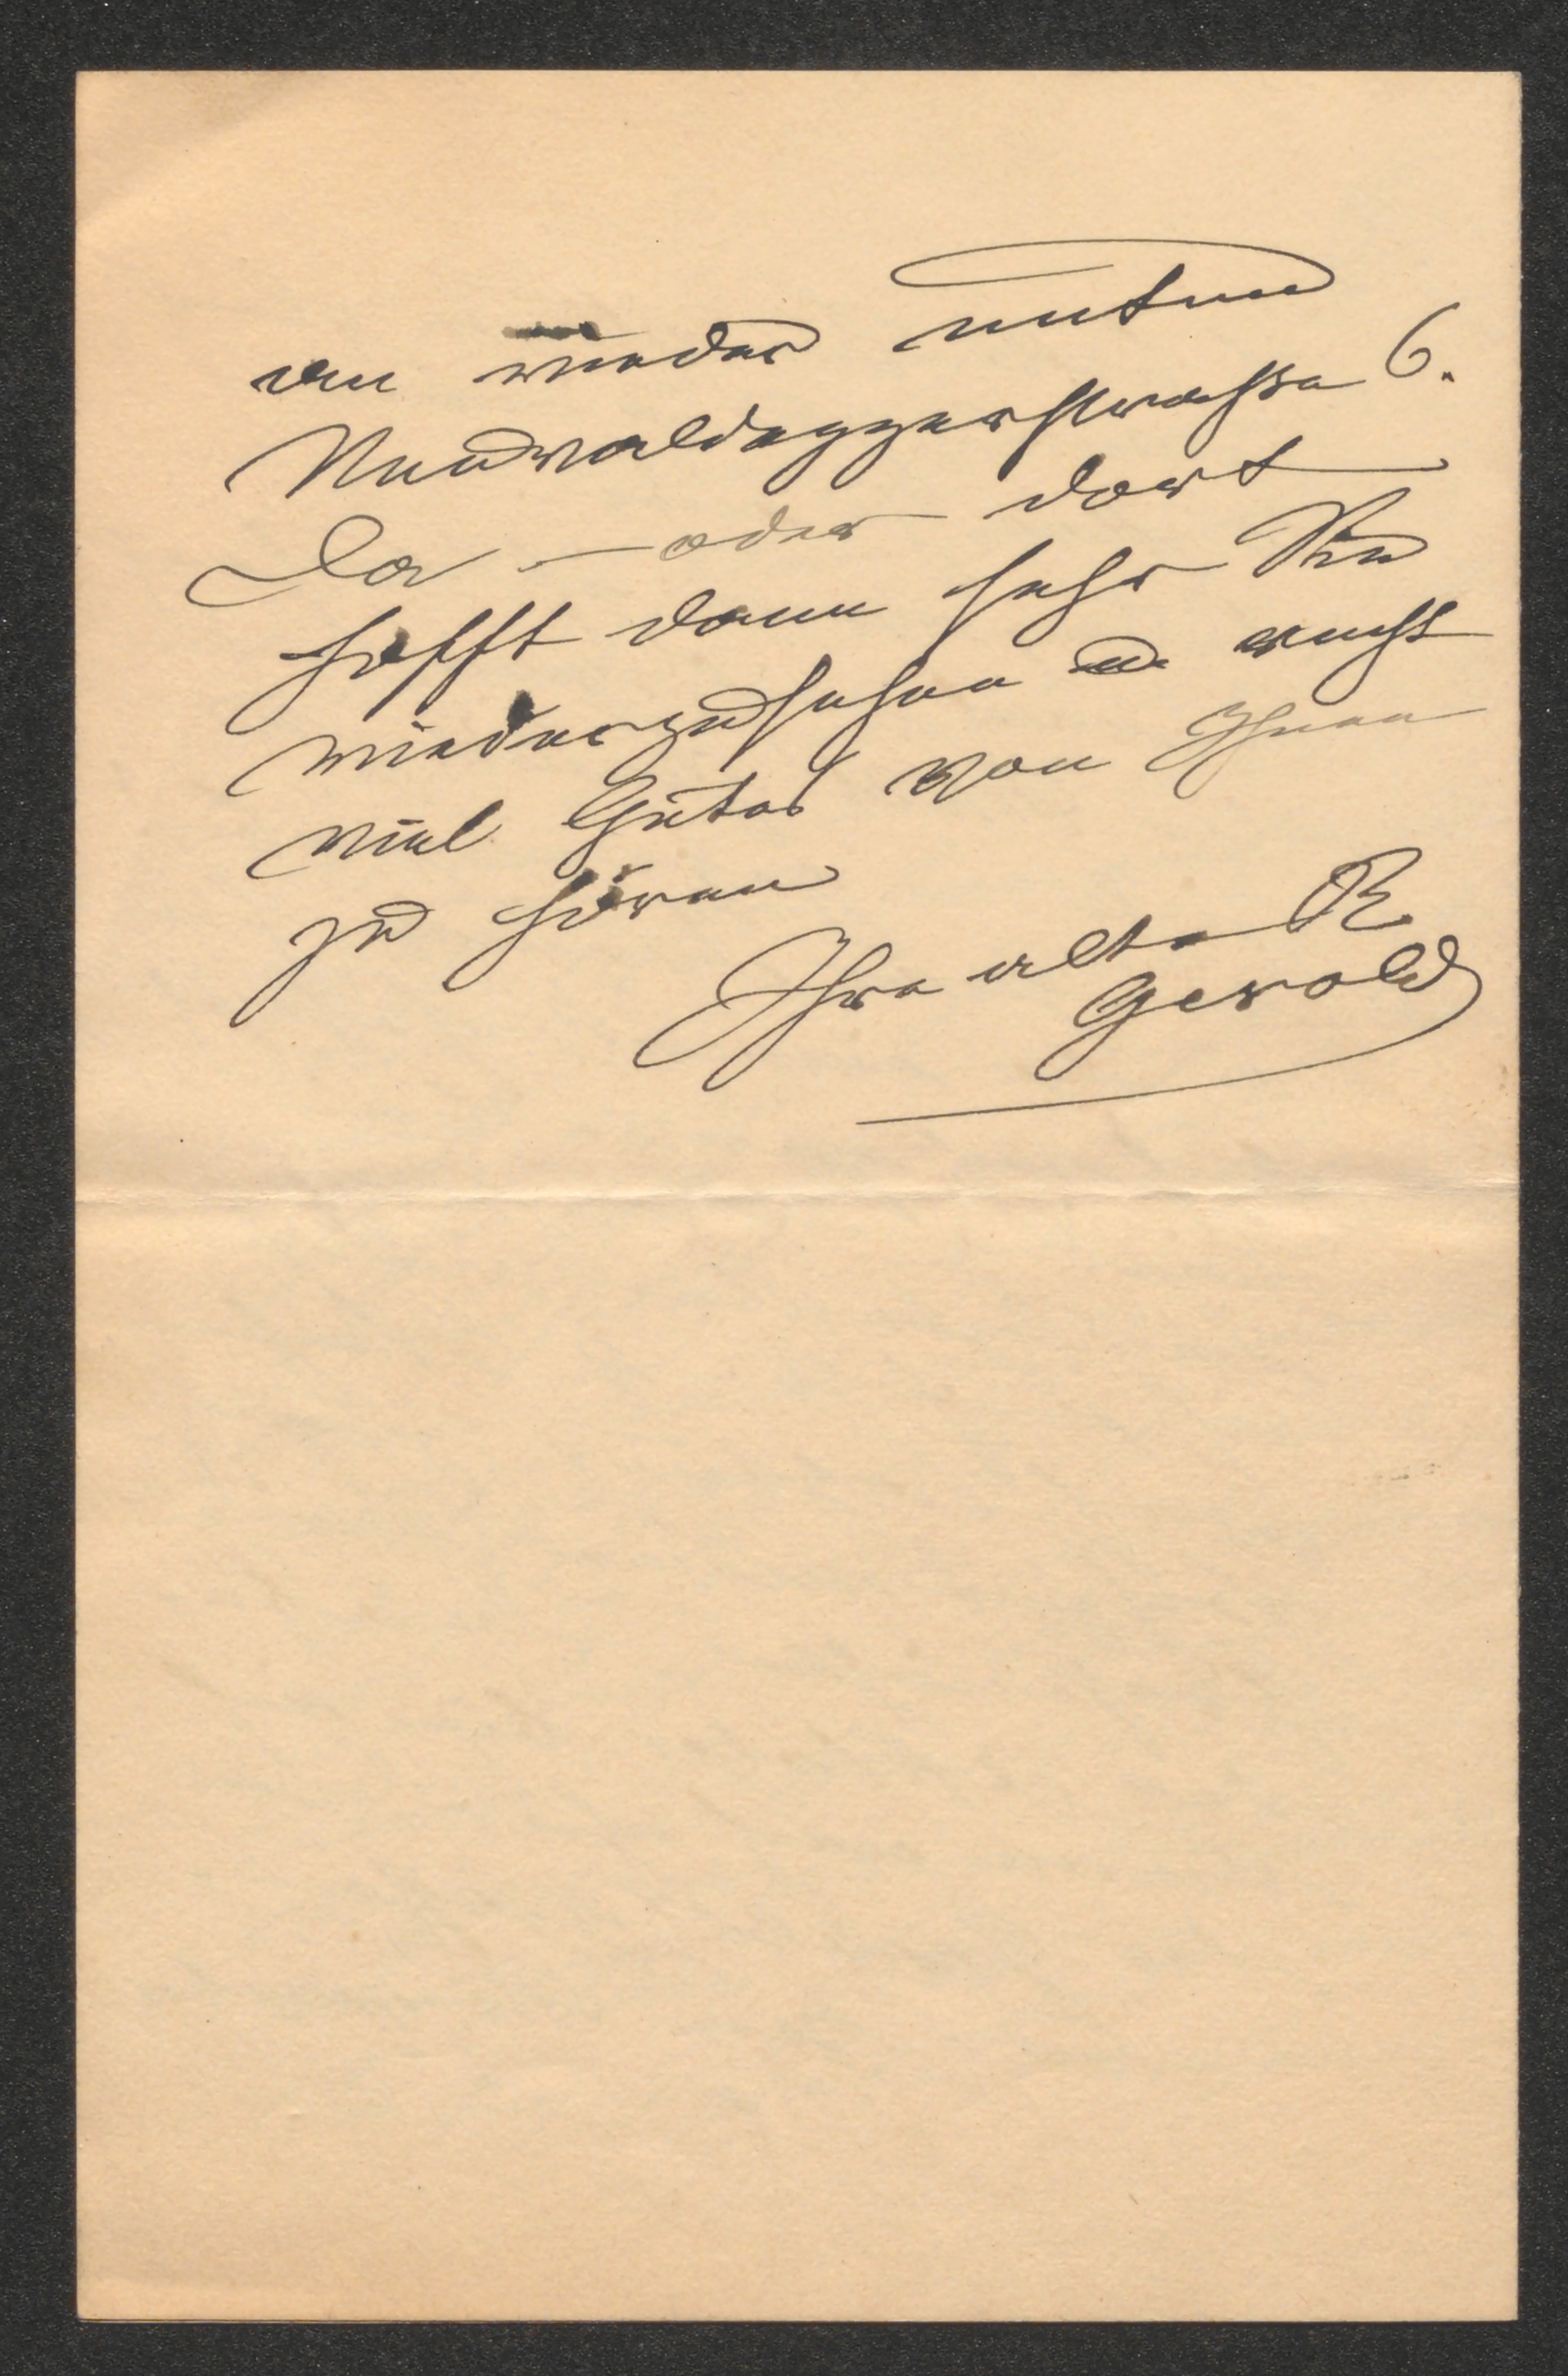 an wieder unten
Neuwaldeggerstrasse 6.
Da – oder dort
hofft dann sehr Sie
wiederzusehen u. recht
viel Gutes von Ihnen
zu hören
Ihre alte R
Gerold